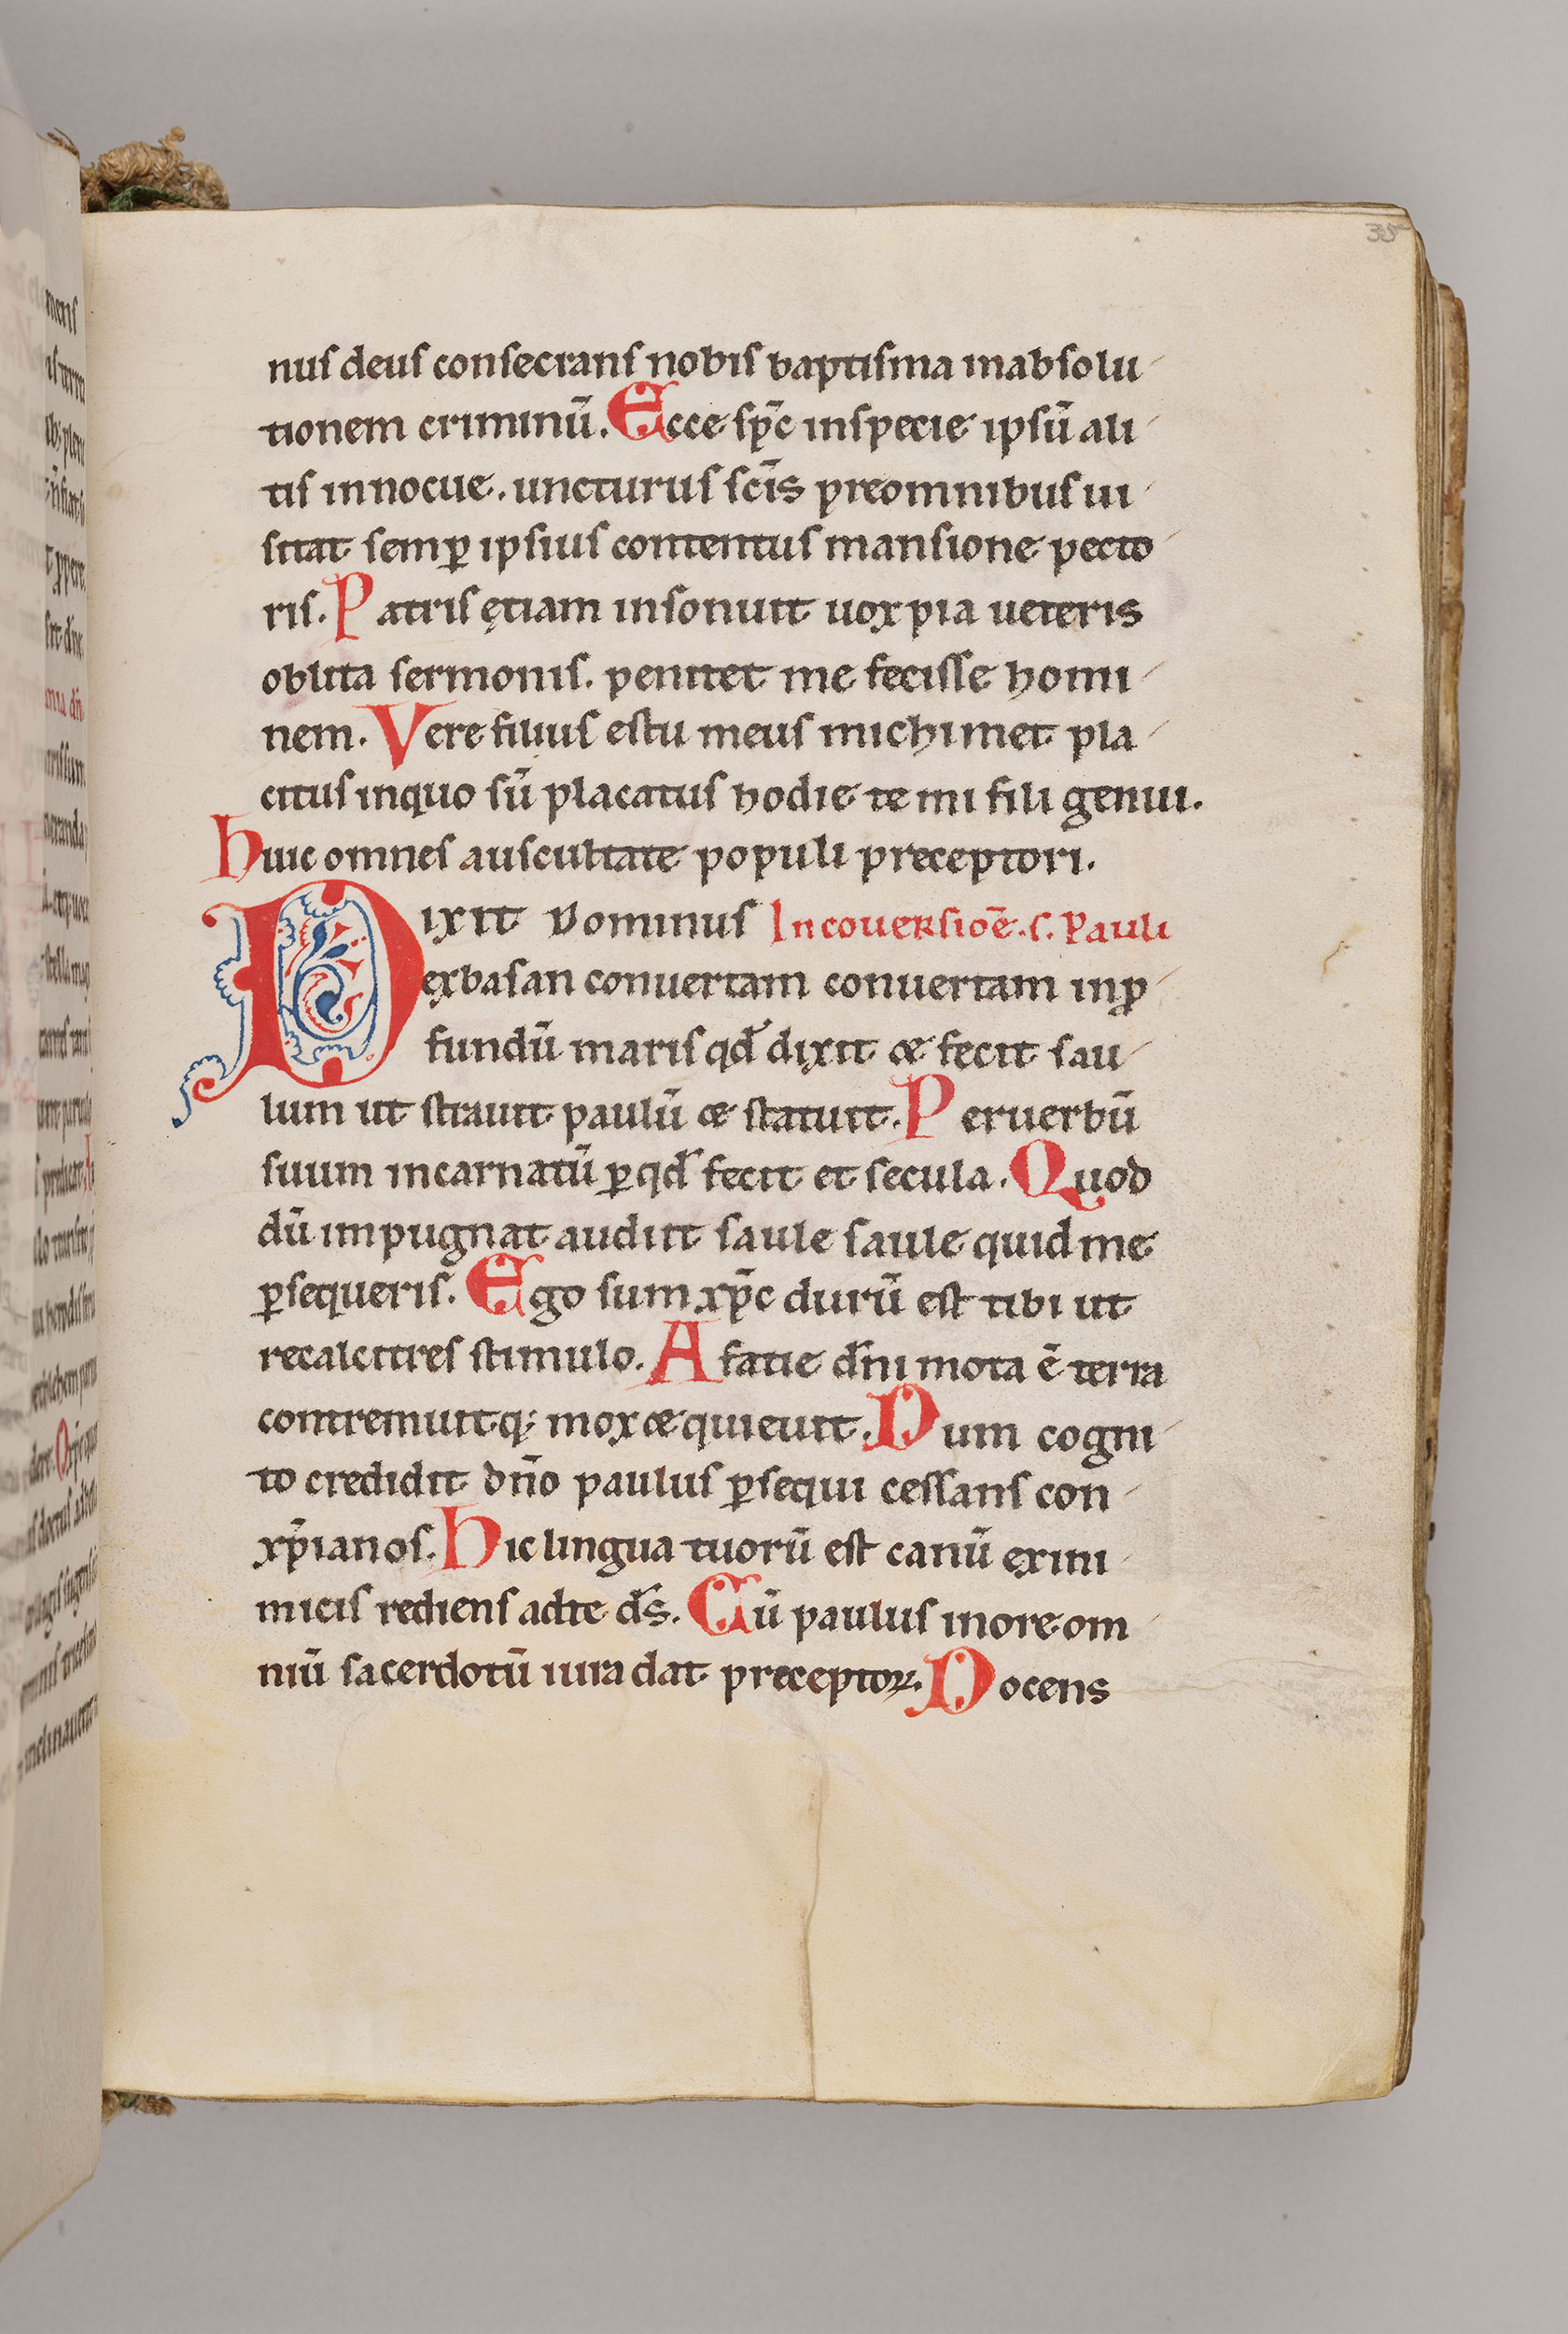 35
nuſ deuſ conſecranſ nobiſ baptiſma inabſolu
tionem criminū. Ecce ſp̄c inſpecie ipſū ali
tiſ innocue. uncturuſ ſc̄is preomnibuſ ui
ſitat ſemꝑ ipſiuſ contentuſ manſione pecto
riſ. Patriſ ętiam inſonuit uox pia ueteris
oblita ſermoniſ. penitet me feciſſe homi
nem. Vere filiuſ eſtu meuſ michimet pla
cituſ inquo ſū placatuſ hodie te mi fili genui.
Huic omneſ auſcultate populi preceptori.
Dixit Dominuſ In couerſioē. ſ. Pauli
exbaſan conuertam conuertam inꝓ
fundū mariſ qd̄ dixit & fecit ſau
lum ut ſtrauit paulū & ſtatuit. Peruerbū
ſuum incarnatū ꝑqd̄ fecit et ſecula. Quod
dū impugnat audiit ſaule ſaule quid me
ꝑſequeriſ. Ego ſum xp̄c durū eſt tibi ut
recalcitreſ ſtimulo. A fatie dn̄i mota ē terra
contremuitq; mox & quieuit. Dum cogni
to credidit dn̄o pauluſ ꝑſequi ceſſanſ con
xp̄ianoſ. Hic lingua tuorū eſt canū exini
miciſ redienſ adte ds̄. Cū pauluſ inore om
niū ſacerdotū iura dat preceptoꝝ. Docens